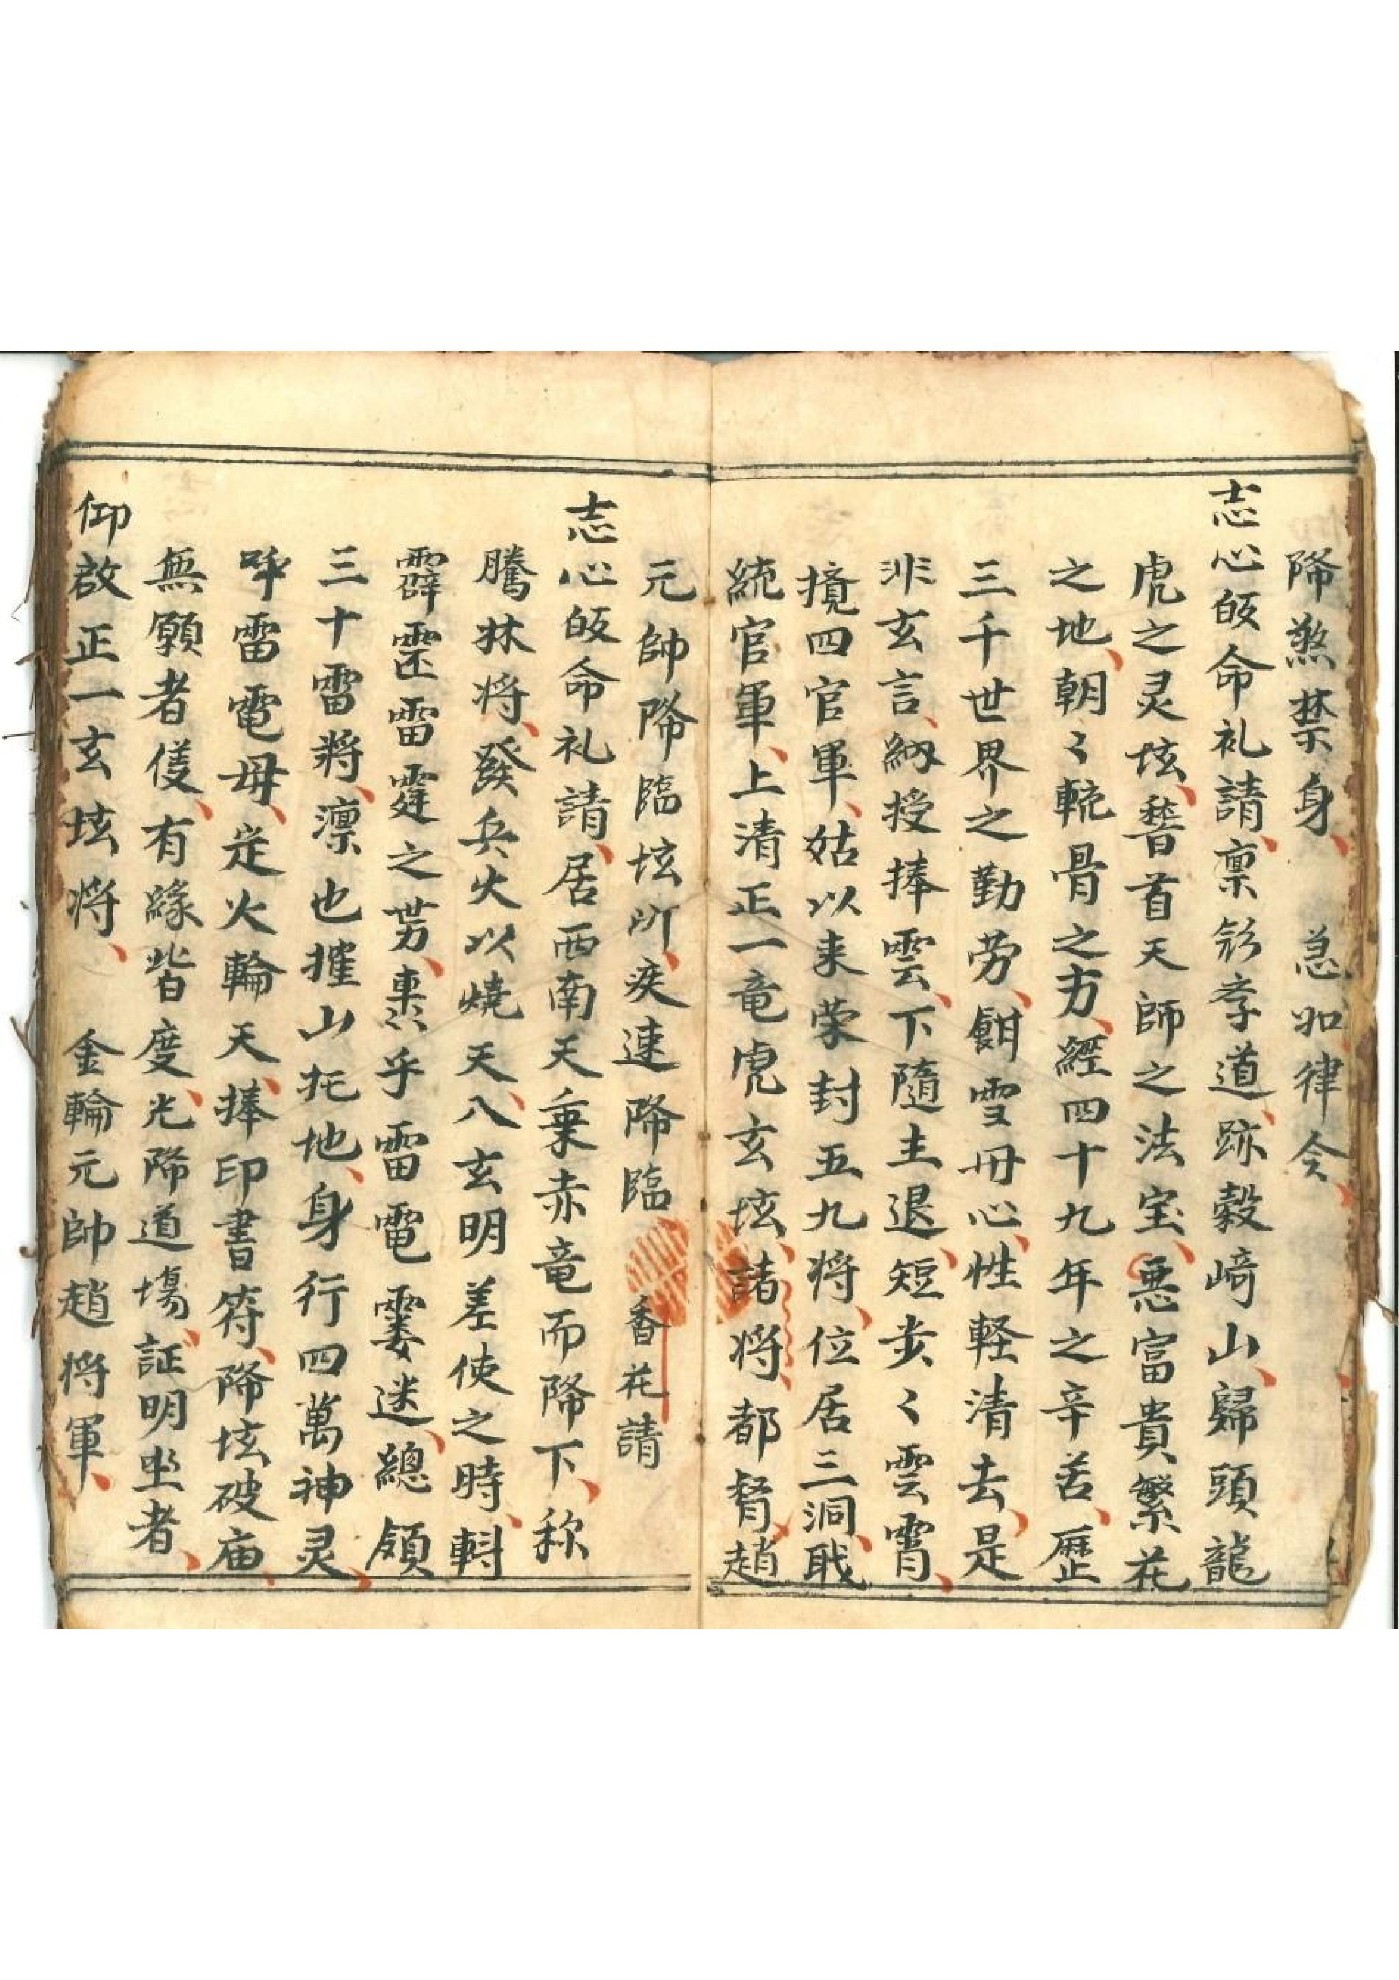 降煞禁身、急如律令、
志心皈命礼請、禀彩孝道、跡穀﨑山、歸頭龍
虎之灵坛、稽首天師之法宝、悪富貴繁花
之地、朝〻輗骨之方、經四十九年之辛苦、歷
三千世界之勤劳、餰雪毋心、性軽清去、是
非玄言、納授捧雲、下隨主退、短步〻雲霄、
攪四官軍、姑以来蒙封五九将、位居三洞、職
統官軍、上清正一竜虎玄坛、諸将都督、趙
元帥降臨坛所、疾速降臨 香花請
志心皈命礼請、居西南天乗赤竜而降下、称
騰林将、發兵火以燒天、八玄明差使之時、斟
霹雳雷霆之势、惠乎雷電霎迷、總領
三十雷將、凛也摧山托地、身行四萬神灵、
呼雷電母、走火輪天、捧印書符、降坛破庙、
無願者、有緣皆度、光降道場、証明坐者、
仰啟正一玄坛将、金輪元帥趙将軍、